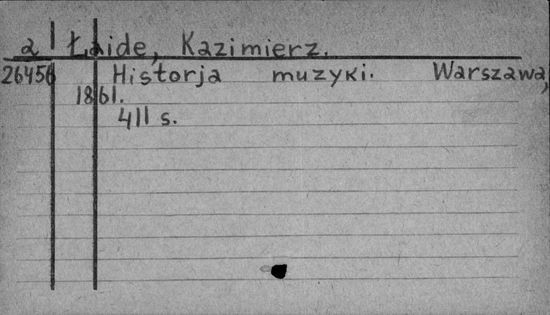 a Łaide, Kazimierz.
26456 Historja muzyki. Warszawa,
1861.
411 s.